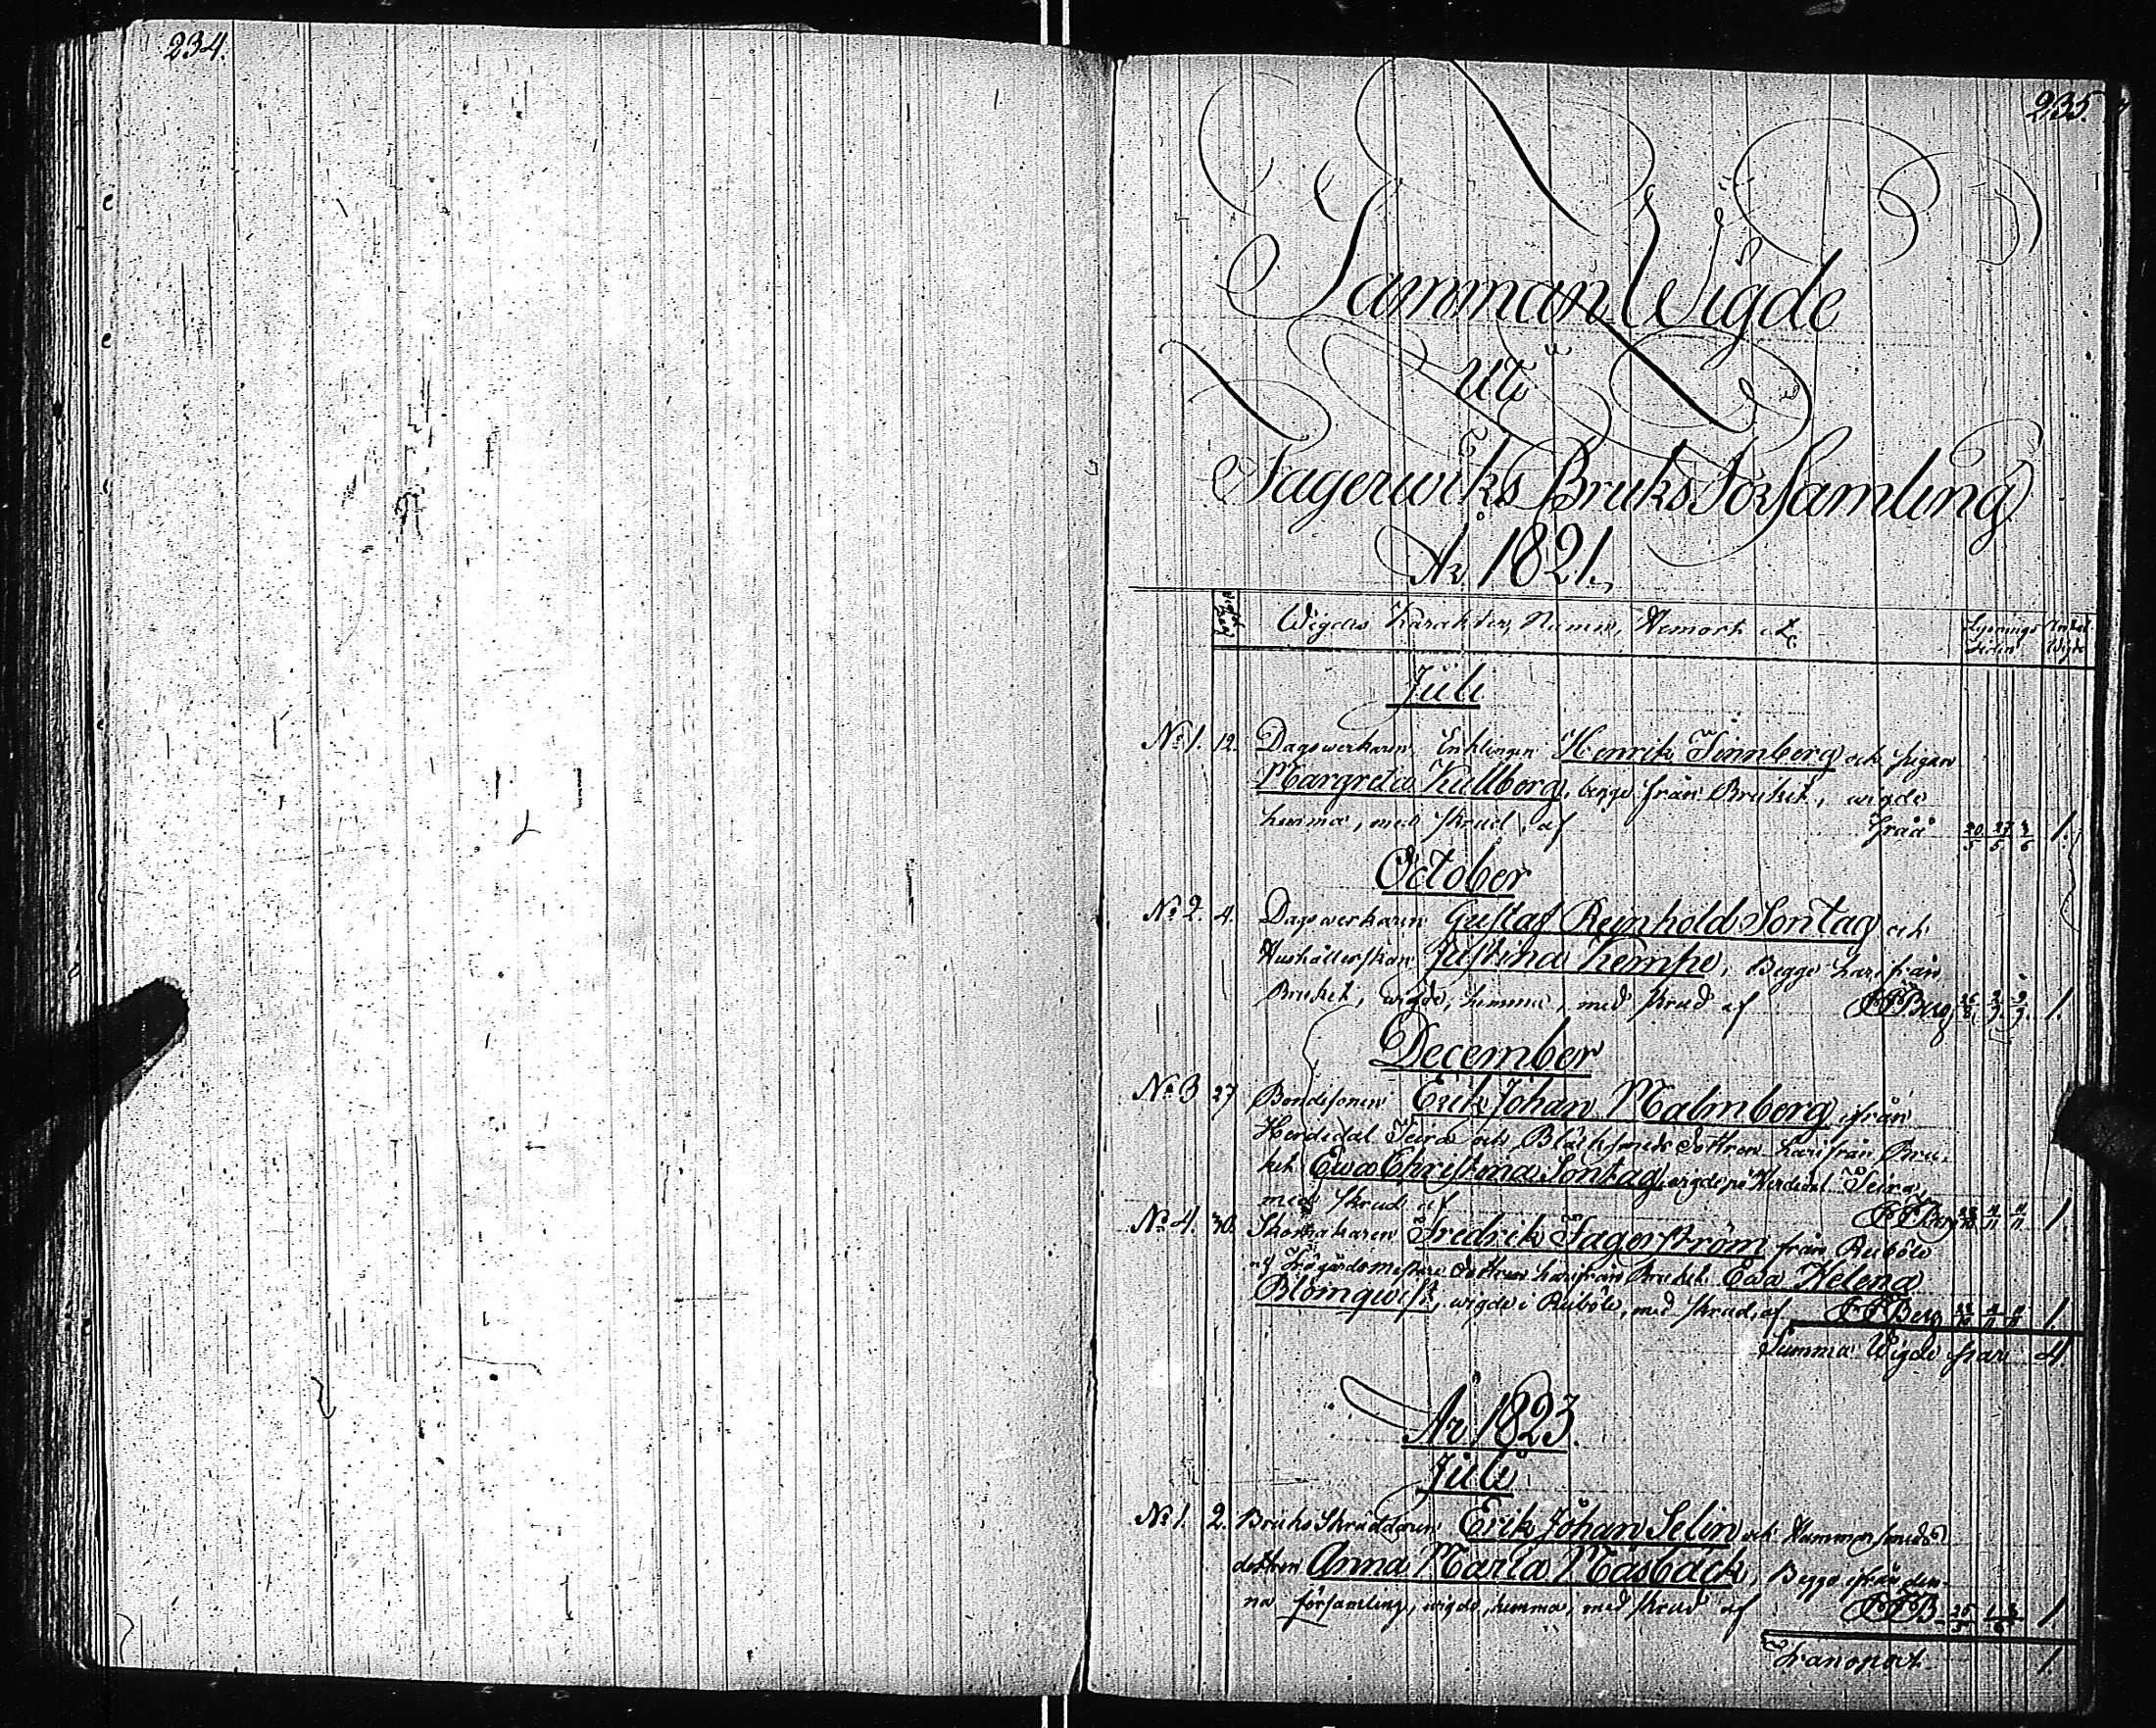 234.
235.
Samman Wigde
uti
Fagerwiks Bruks Församling
År 1821.
Wigdes Karakter, Namn, Hemort &c
Lysnings Antal
tiden Wigde
Juli
No 1. 12. Dagswerkaren Enklingen Henrik Finnberg och pigan
Margreta Kullberg, begge från Bruket, wigde
hemma, med skrud, af 20/5 27/5 3/6 1.
October
No 2. 4. Dagswerkaren Gustaf Reinhold Sontag och
Hushållerskan Justina Kempe, Begge härifrån
Bruket, wigde, hemma, med skrud af Berg 26/8 2/9 9/9 1.
December
No 3 27 Bondesonen Erik Johan Malmberg ifrån
Herdedal Teira och Bläcksmeds Dottren härifrån Bru-
ket Ewa Christina Sontag, wigde på Herdedal Teira,
med skrud af Berg 1.
No 4. 30. Skomakaren Fredrik Fagerström från Ruböle
och Trägårdsmästare Dottren härifrån Bruket Ewa Helena
Blomqwist, wigde i Ruböle, med skrud, af Berg 1.
Summa Wigde par 4.
År 1823.
Juli
No 1. 2. Bruks Skräddaren Erik Johan Selin och Hammarsmeds
dottren Anna Maria Måsbäck, Begge ifrån den-
na församling, wigde, hemma, med skrud af 1
Transport 1.